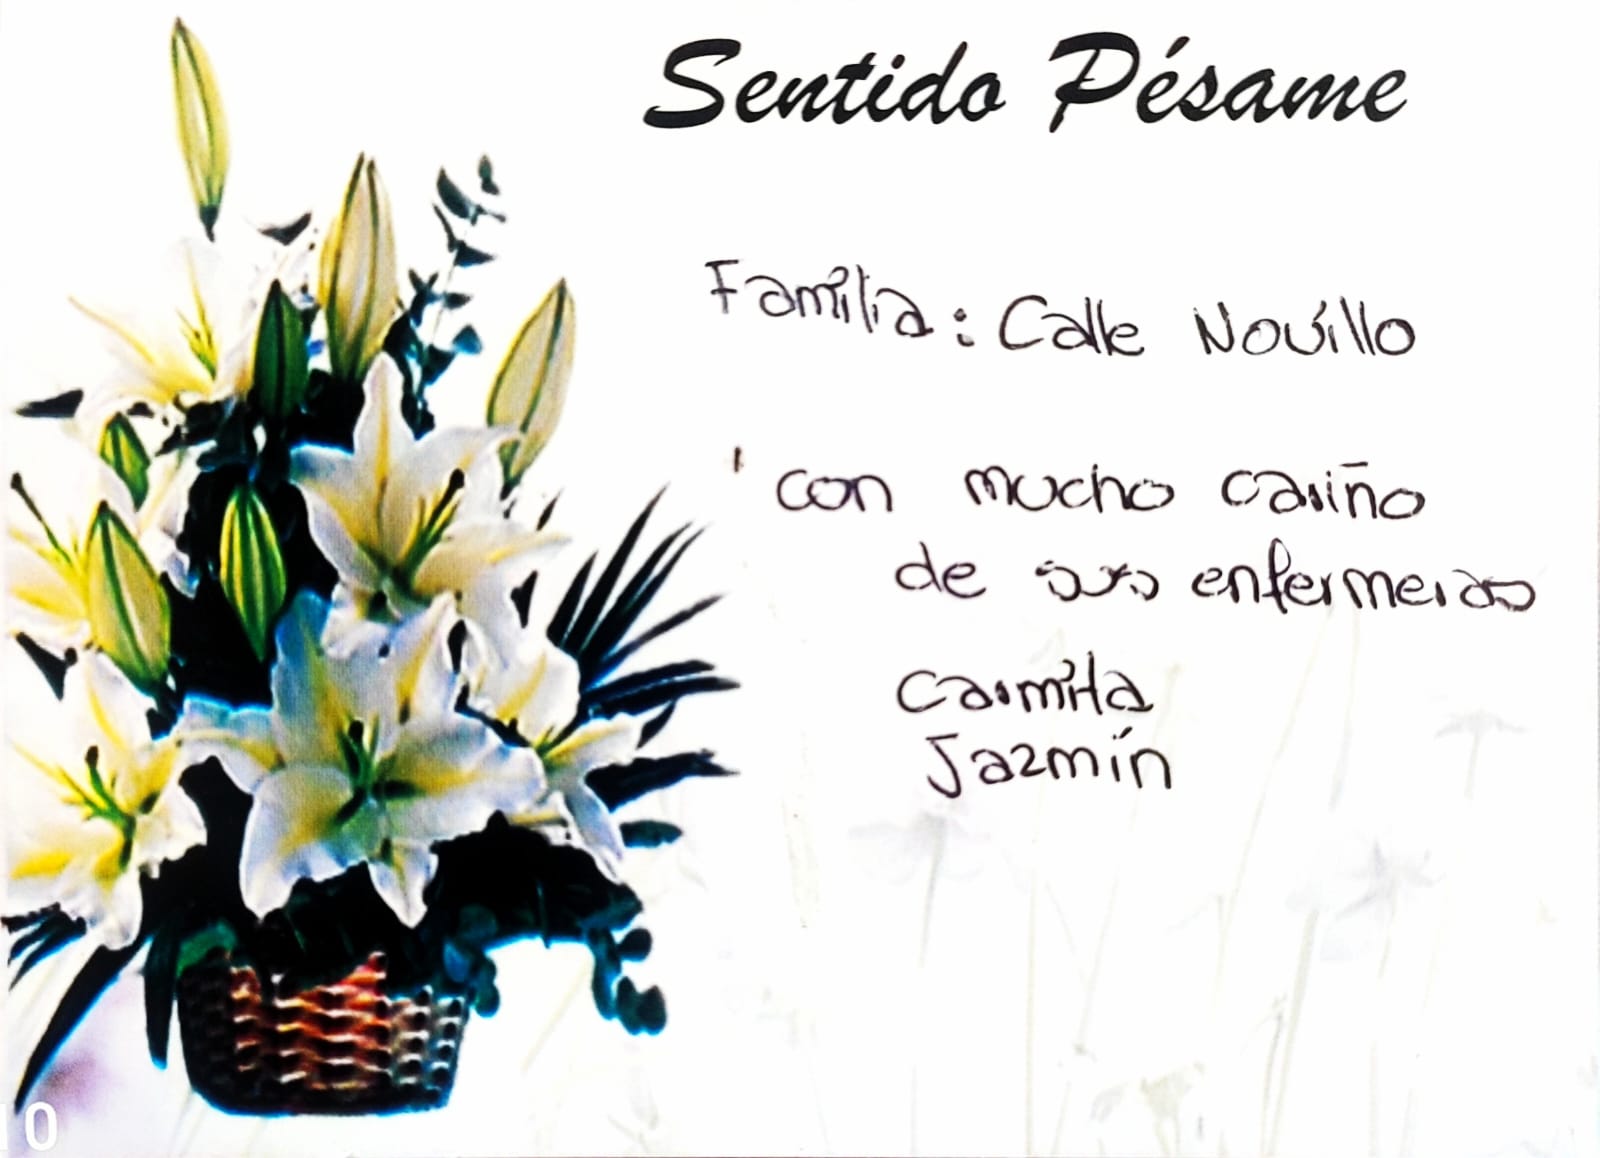 Sentido Pésame
Familia: Calle Novillo
con mucho cariño
de sus enfermeras
Carmita
Jazmín
10